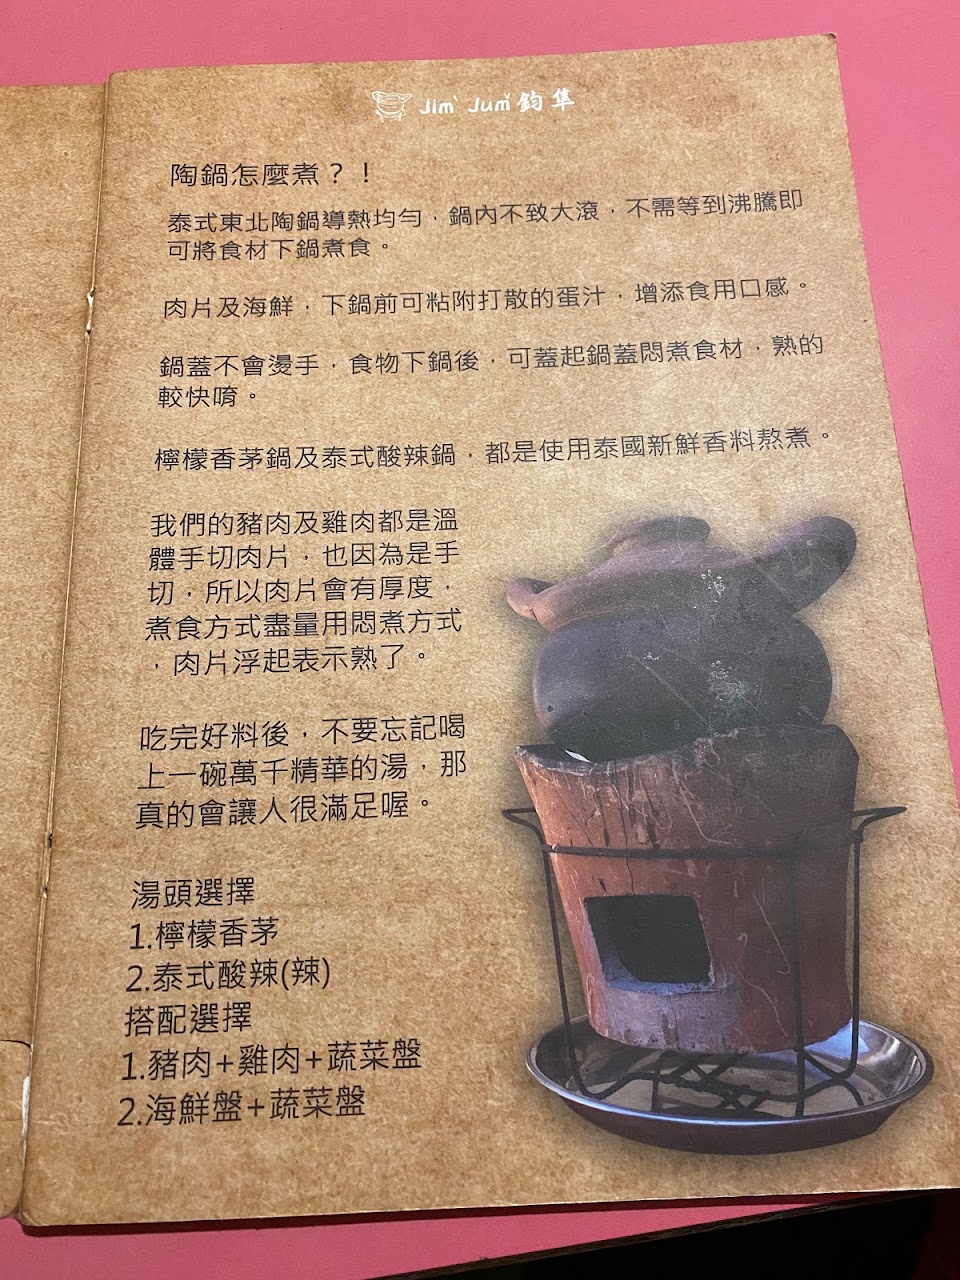 Jim Jum 鈞隼
陶鍋怎麼煮？！
泰式東北陶鍋導熱均勻，鍋內不致大滾，不需等到沸騰即
可將食材下鍋煮食。
肉片及海鮮，下鍋前可粘附打散的蛋汁，增添食用口感。
鍋蓋不會燙手，食物下鍋後，可蓋起鍋蓋悶煮食材，熟的
較快唷。
檸檬香茅鍋及泰式酸辣鍋，都是使用泰國新鮮香料熬煮。
我們的豬肉及雞肉都是溫
體手切肉片，也因為是手
切，所以肉片會有厚度，
煮食方式盡量用悶煮方式
，肉片浮起表示熟了。
吃完好料後，不要忘記喝
上一碗萬千精華的湯，那
真的會讓人很滿足喔。
湯頭選擇
1.檸檬香茅
2.泰式酸辣(辣)
搭配選擇
1.豬肉+雞肉+蔬菜盤
2.海鮮盤+蔬菜盤